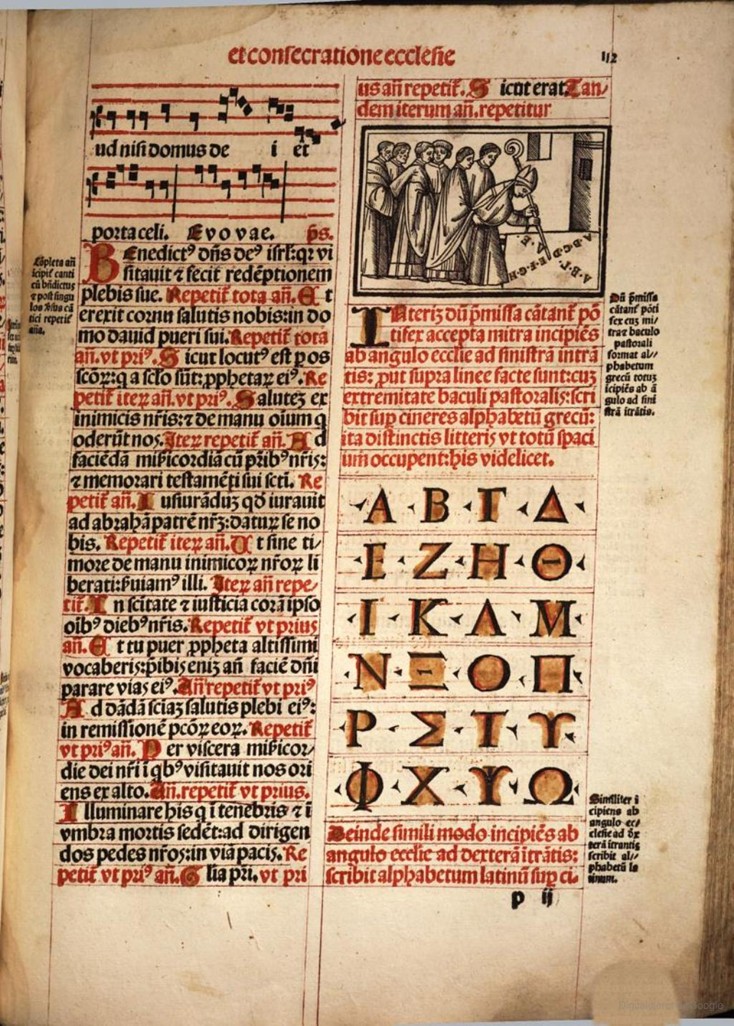 et consecratione ecclesie
112
ud nisi domus de i et
porta celi. Evovae. p̄s.
Cōpleta añ
icipit canti
cū bñdictꝰ
⁊ post singu
los ꝟsus cā
tici repetit᷑
aña.
BEnedictꝰ dñs deꝰ isrl̓: qꝛ vi
sitauit ⁊ fecit redēptionem
plebis sue. Repetit᷑ tota añ. Et
erexit cornu salutis nobis: in do
mo dauid pueri sui. Repetit᷑ tota
añ. vt priꝰ. Sicut locutꝰ est p os
scōꝝ: q a sclo sūt: ꝓphetaꝝ eiꝰ. Re
petit᷑ iteꝝ añ. vt priꝰ. Salutez ex
inimicis nr̄is: ⁊ de manu oium q
oderūt nos. Iteꝝ repetit᷑ añ. Ad
faciēdā mīcordiā cū pr̄ibꝰ nr̄is:
⁊ memorari testamēti sui scti. Re
petit᷑ añ. Iusiurāduꝫ qd̄ iurauit
ad abrahā patrē nrꝫ: daturꝫ se no
bis. Repetit᷑ iteꝝ añ. Ut sine ti⸗
more de manu inimicoꝝ nr̄oꝝ li
berati: ẜuiamꝰ illi. Iteꝝ añ repe⸗
tit᷑. In scītate ⁊ iusticia corā ipso
oībꝰ diebꝰ nr̄is. Repetit᷑ vt prius
añ. Et tu puer ꝓpheta altissimi
vocaberis: p̄ibis eniꝫ añ faciē dñi
parare vias eiꝰ. Añ repetit᷑ vt priꝰ
Ad dādā sciaꝫ salutis plebi eiꝰ:
in remissionē pcōꝝ eoꝝ. Repetit᷑
vt priꝰ añ. Per viscera mīcor⸗
die dei nr̄i ī qbꝰ visitauit nos ori
ens ex alto. Añ. repetit᷑ vt prius.
Illuminare his q ī tenebris ⁊ ī
vmbra mortis sedēt: ad dirigen
dos pedes nr̄os: in viā pacis. Re
petit᷑ vt priꝰ añ. Glia pri. vt pri
us añ repetit᷑. Sicut erat. Tan⸗
dem iterum añ. repetitur
INteriꝫ dū p̄missa cātant᷑ pō
tifex accepta mitra incipiēs
ab angulo ecclie ad sinistrā intrā
tis: ꝓut supra linee facte sunt: cuꝫ
extremitate baculi pastoralis: scri
bit sup cineres alphabetū grecū:
ita distinctis litteris vt totū spaci
um occupent: his videlicet.
Dū p̄missa
cātant᷑ pōti
fex cuꝫ mi⸗
tra ⁊ baculo
pastorali
format al⸗
phabetum
grecū totuꝫ
icipiēs ab ā
gulo ad sini
strā ītrātis.
Α Β Γ Δ
Ε Ζ Η Θ
Ι Κ Λ Μ
Ν Ξ Ο Π
Ρ Σ Τ Υ
Φ Χ Υ Ω
Deinde simili modo incipiēs ab
angulo ecclie ad dexterā ītrātis:
scribit alphabetum latinū sup ci⸗
Similiter i
cipiens ab
angulo ec⸗
clesie ad dx
terā itrantis
scribit al⸗
phabetū la
tinum.
p ij